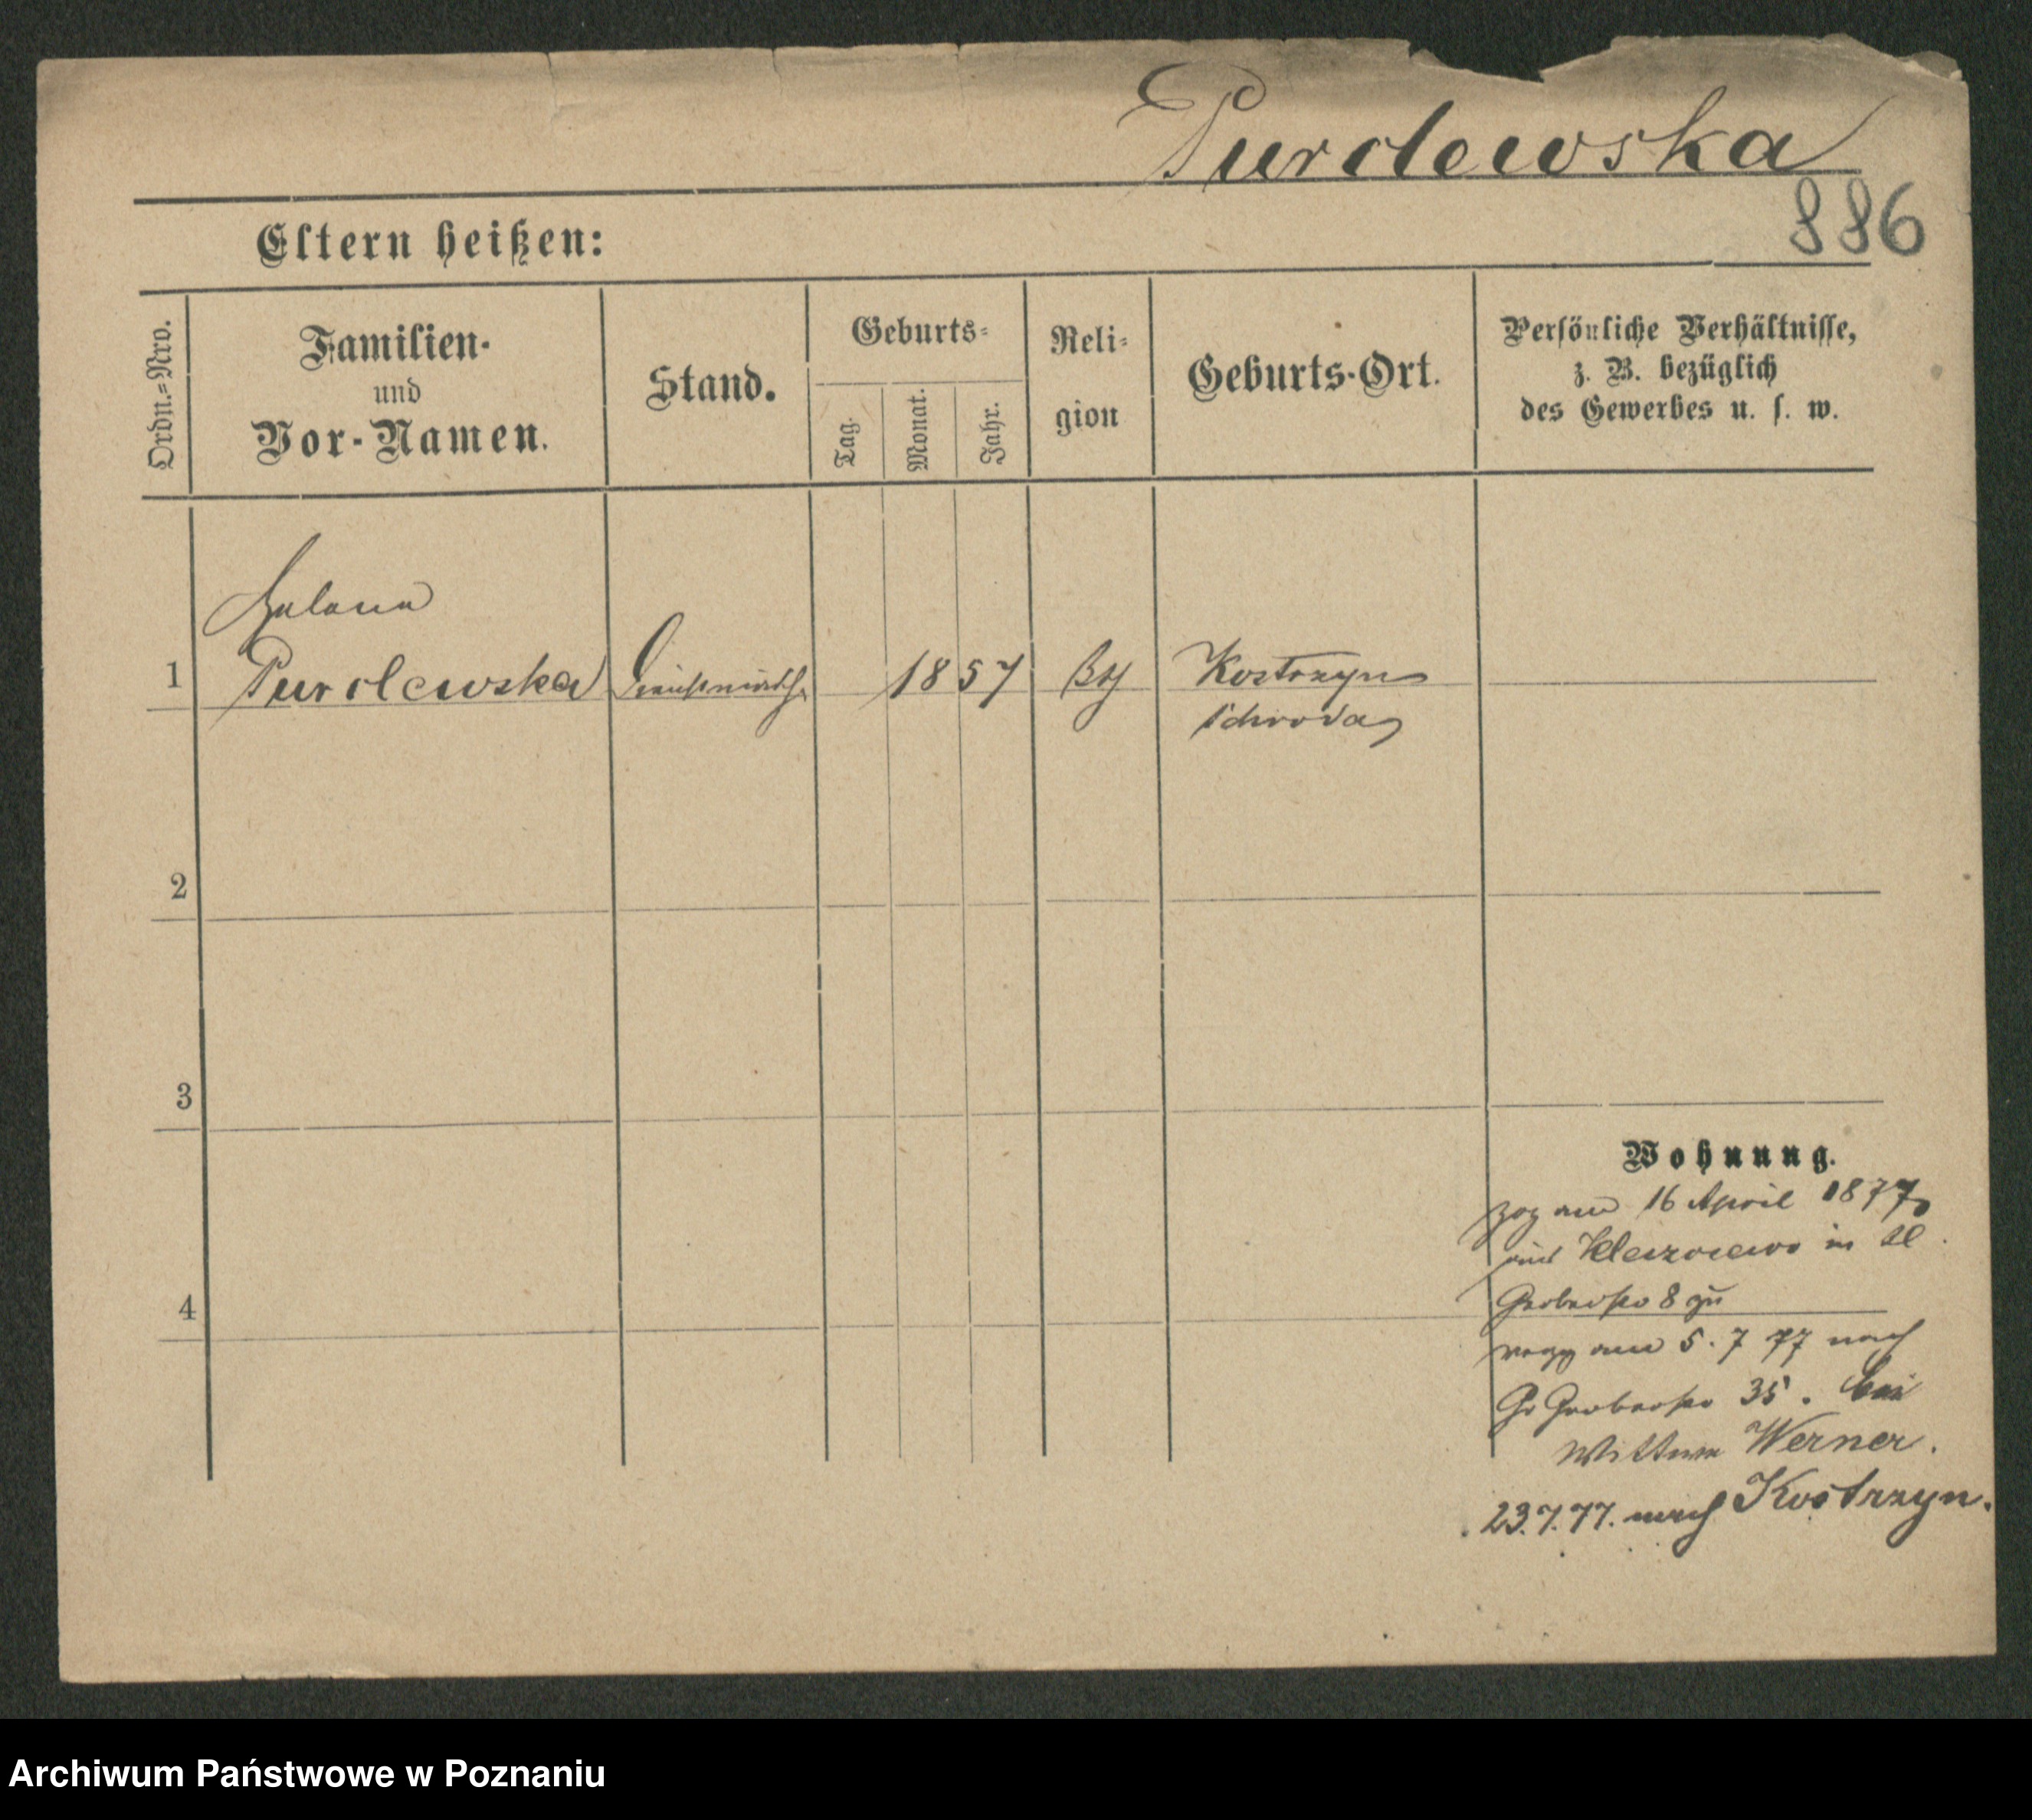 Purolewska
886
Eltern heißen:
Ordn.=Nro.
Familien-
und
Vor-Namen.
Stand.
Geburts-
Tag.
Monat.
Jahr.
Reli-
gion
Geburts-Ort.
Persönliche Verhältnisse,
z. B. bezüglich
des Gewerbes u. s. w.
Helena
1
Purolewska
1857
Kth
Kostrzyn
Schroda
2
3
4
Wohnung.
zog am 16 April 1877
aus in Kl
Gerberstr 8 zu
verzg am 5. 7 77 nach
Gr Gerberstr 35. bei
Wittwe Werner.
23.7.77. nach Kostrzyn.
Archiwum Państwowe w Poznaniu